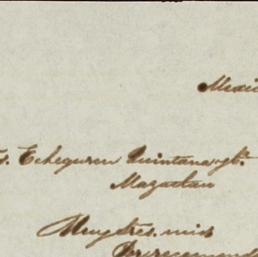 Mexi
s. Echeguren Quintana y Ca.
Mazatlan
Muy Sres. mios